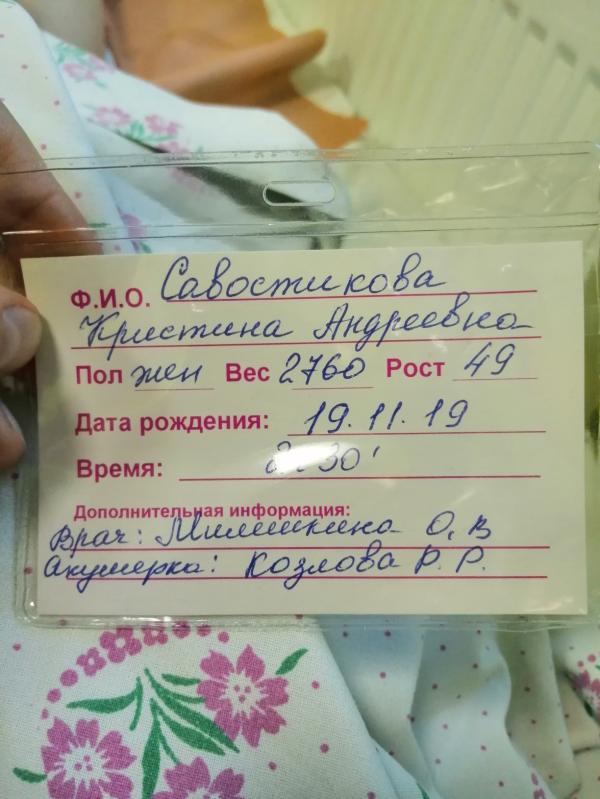 Ф.И.О. Савостикова
Кристина Андреевна
Пол жен Вес 2760 Рост 49
Дата рождения: 19.11.19
Время: 30'
Дополнительная информация:
Врач: О, В
Акушерка: Козлова Р. Р.